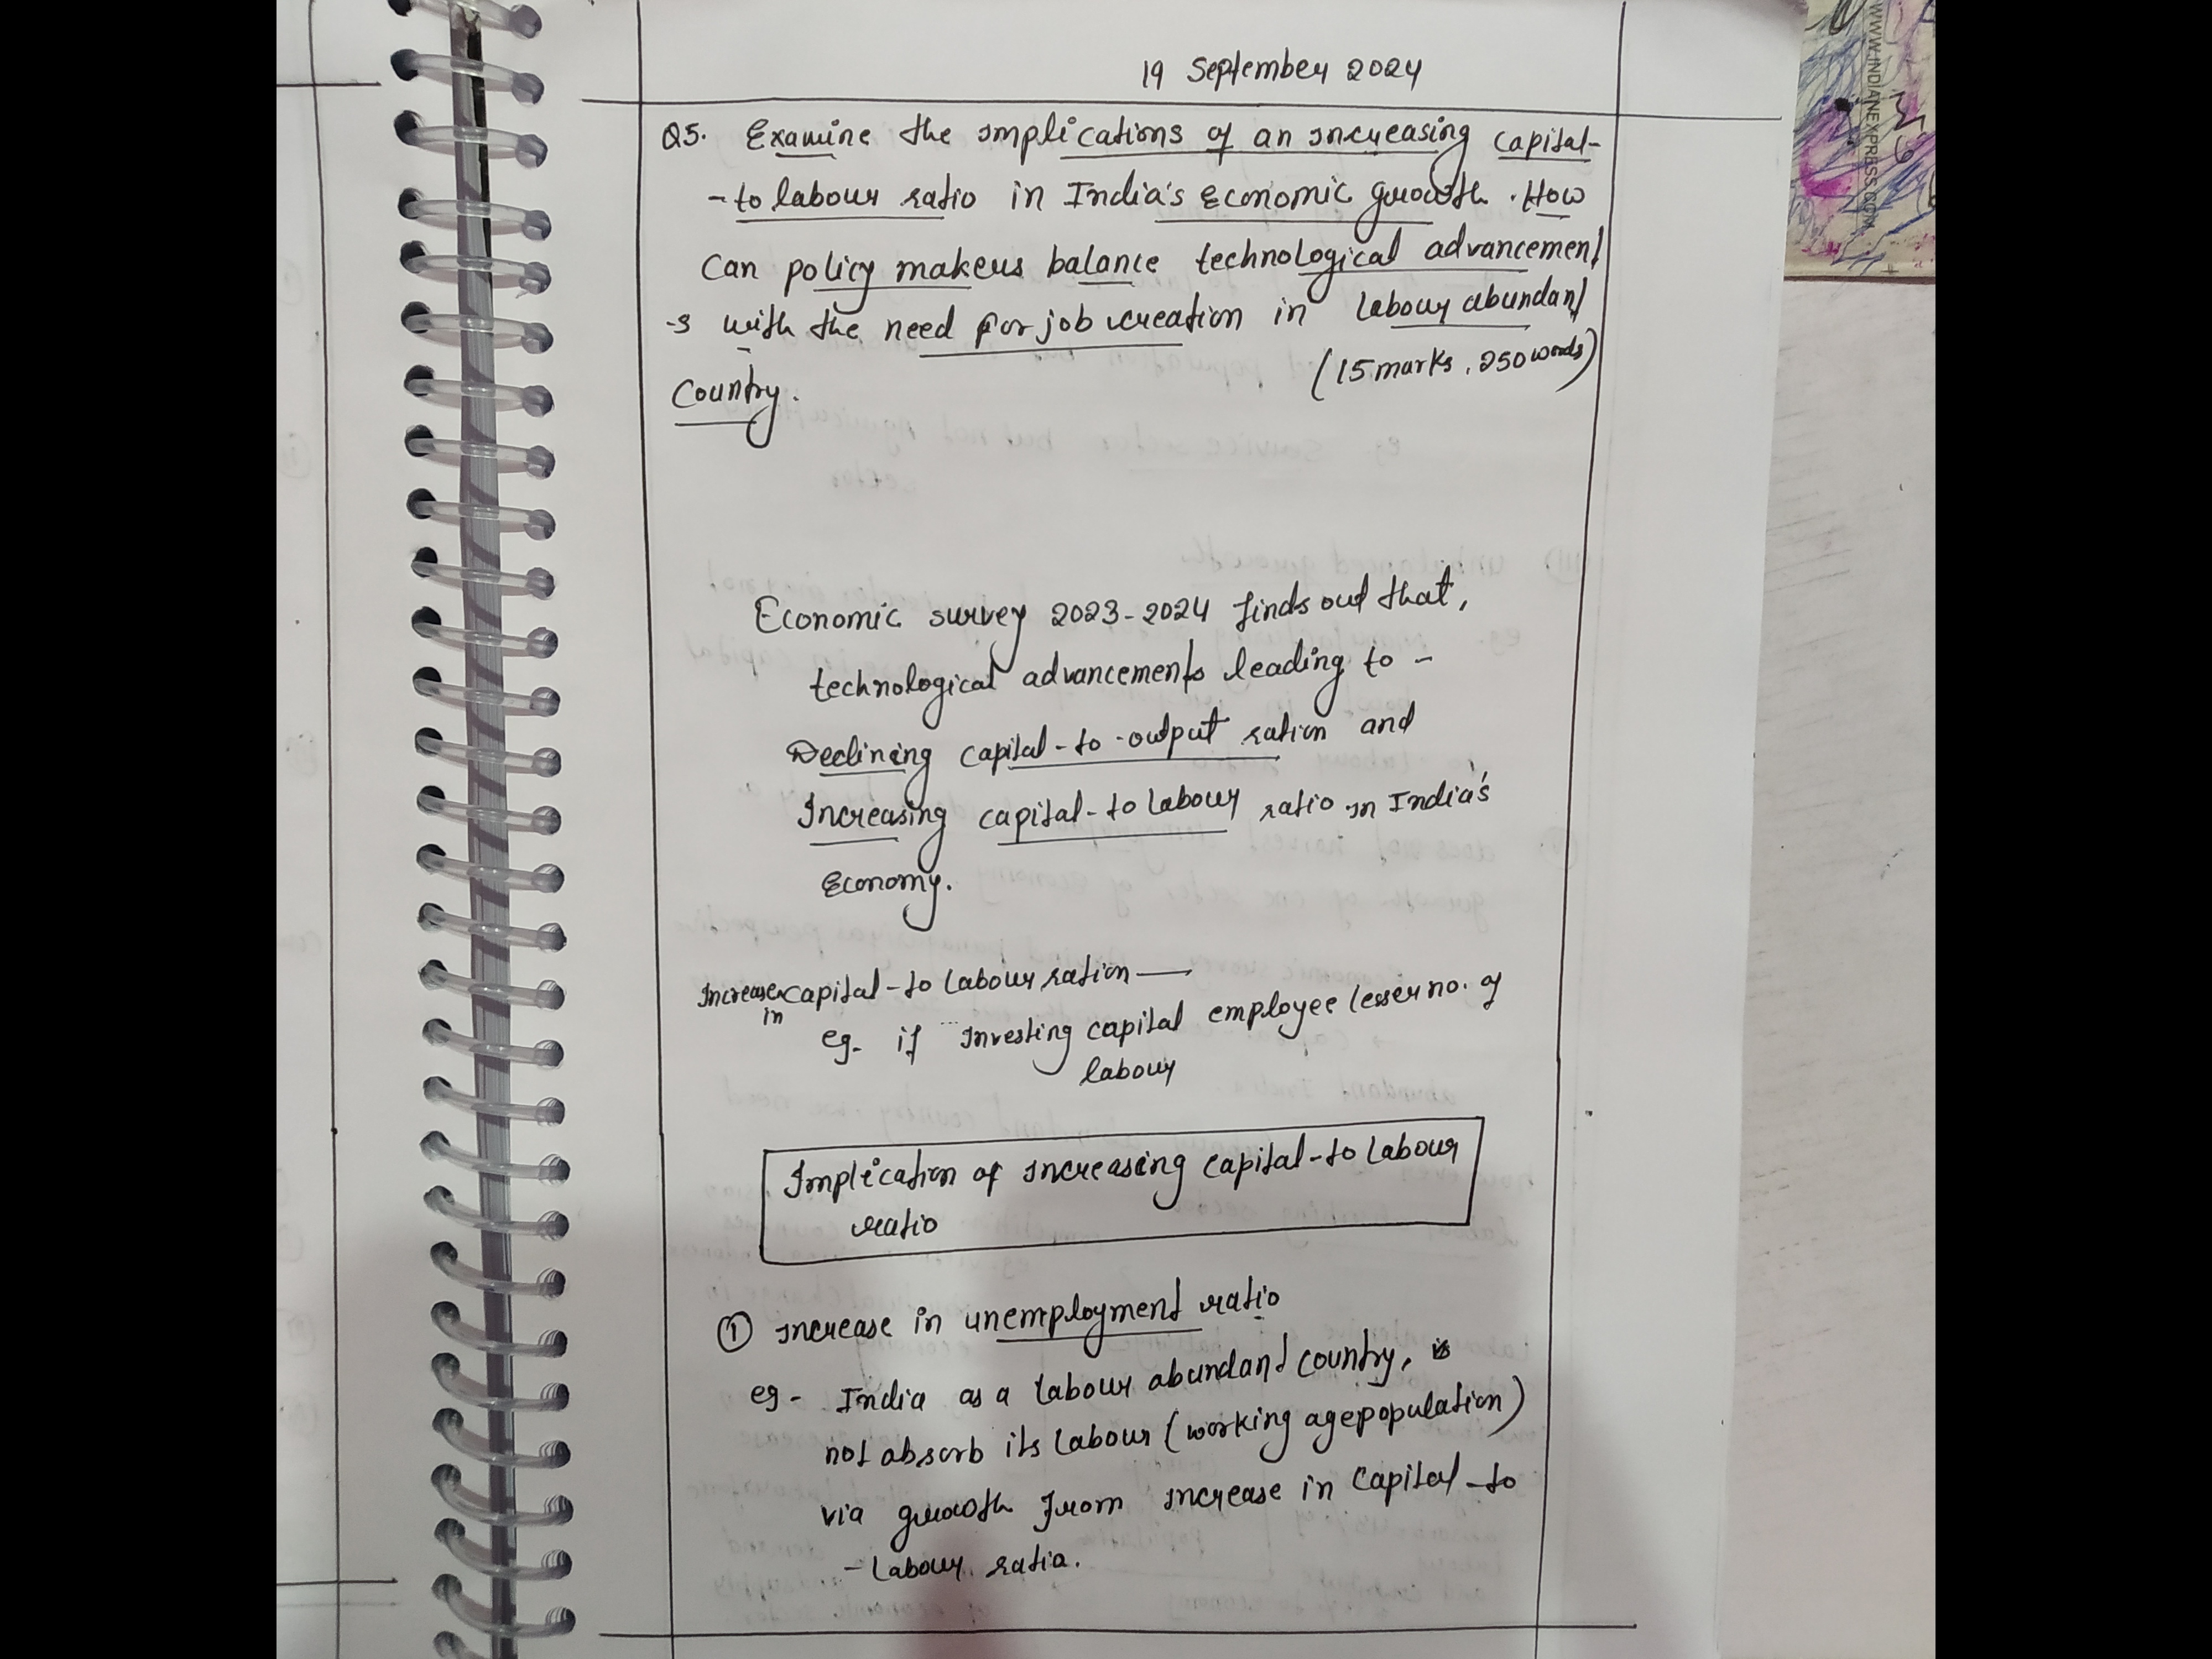 19 September 2024
Q5. Examine the implications of an increasing capital-
- to labour ratio in India's economic growth. How
can policy makers balance technological advancement
-s with the need for job creation in labour abundant
country.
(15 marks, 250 words)
Economic survey 2023-2024 finds out that,
technological advancements leading to -
Declining capital-to-output ration and
Increasing capital-to labour ratio in India's
economy.
Increase capital-to labour ration —
in
eg. if investing capital employee lesser no. of
labour
Implication of increasing capital-to labour
ratio
① increase in unemployment ratio
eg- India as a labour abundant country, is
not absorb its labour (working age population)
via growth from increase in capital-to
-labour ratio.
WWW.INDIANEXPRESS.COM